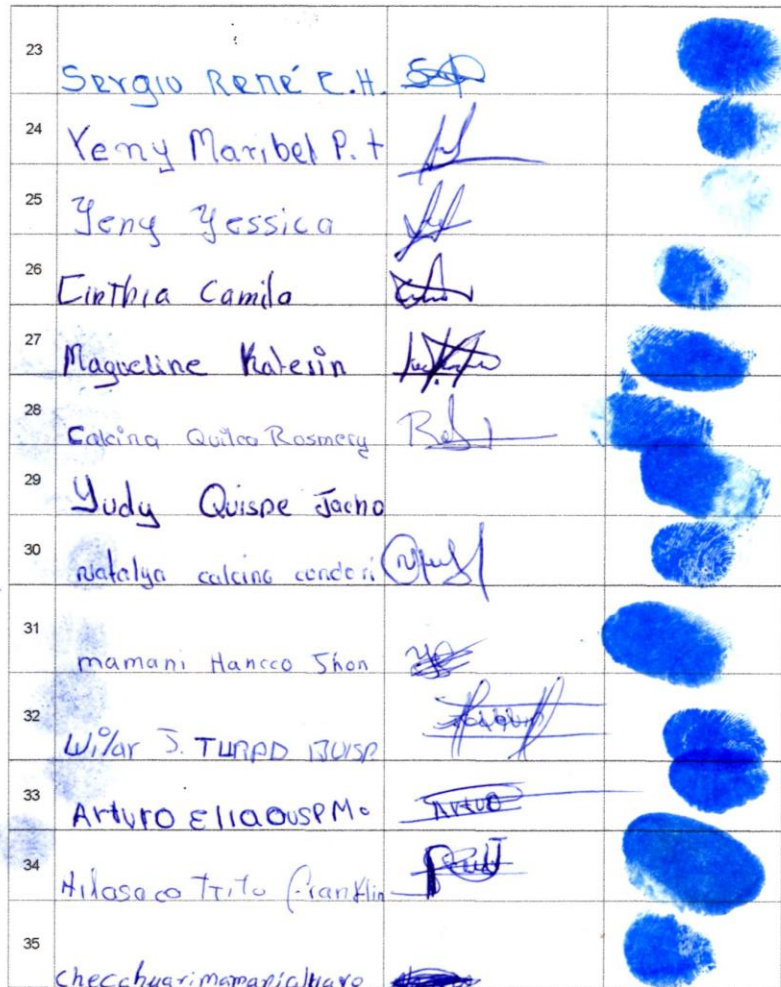 23 Sergio René C.H.
24 Yeny Maribel P. t
25 Yeny Yessica
26 Cinthia Camila
27 Maqueline Katesin
28 Calcina Quilca Rosmery
29 Yudy Quispe Jacho
30 Natalya calcina condori
31 mamani Hancco Jhon
32 Wilar J. TURPO QUISP
33 Arturo Arturo
34 Hilasaca Tito Franklin
35 checchuarimamanialvaro